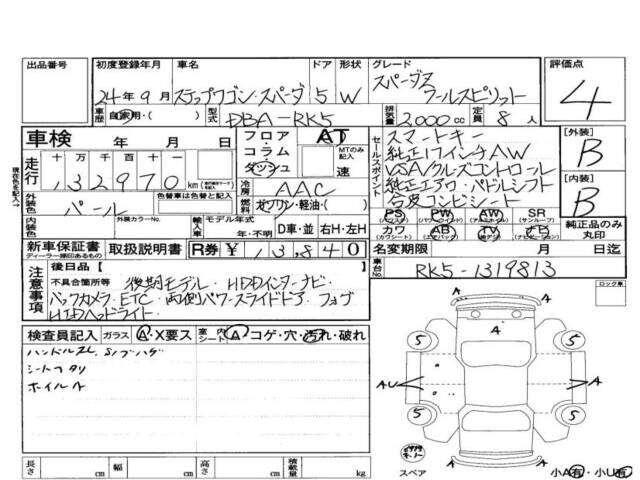 出品番号 初度登録年月 車名 ドア 形状 グレード 評価点
24年9月 ステップワゴン・スパーダ 5 W スパーダZ クールスピリット 4
車歴 自家用・( ) 型式 DBA-RK5 排気量 2,000cc 定員 8人
車検 年 月 日 フロア コラム ダッシュ AT MTのみ記入 速
走行 十万 万 千 百 十 132970 km
現在色を記入→
外装色 パール 冷房 AAC 燃料 ガソリン・軽油・( )
内装色 外装カラーNo. 輸入車 モデル年式 年・不明 D車・並 右H・左H
セールスポイント
スマートキー
純正17インチAW
VSA クルズコントロール
純正エアロ・パドルシフト
合皮コンビシート
PS PW AW SR
カワ AB TV ナビ
[外装] B
[内装] B
純正品のみ丸印
新車保証書 取扱説明書 R券 ¥ 13,840 名変期限 月 日迄
ディーラー様印あるもの
注意事項
後日品[ ]
不具合箇所等 後期モデル・HDDインターナビ・
バックカメラ・ETC・両側パワースライドドア・フォグ
HIDヘッドライト・
車台No. RK5-1319813
ロック車
検査員記入 ガラス A・X要ス 室内 シート A コゲ・穴・汚れ・破れ
ハンドルスレ
ホイールA
5 5 5 5
A A A A A AU
スペア
小A有・小U有
長さ cm 幅 cm 高さ cm 積載量 kg